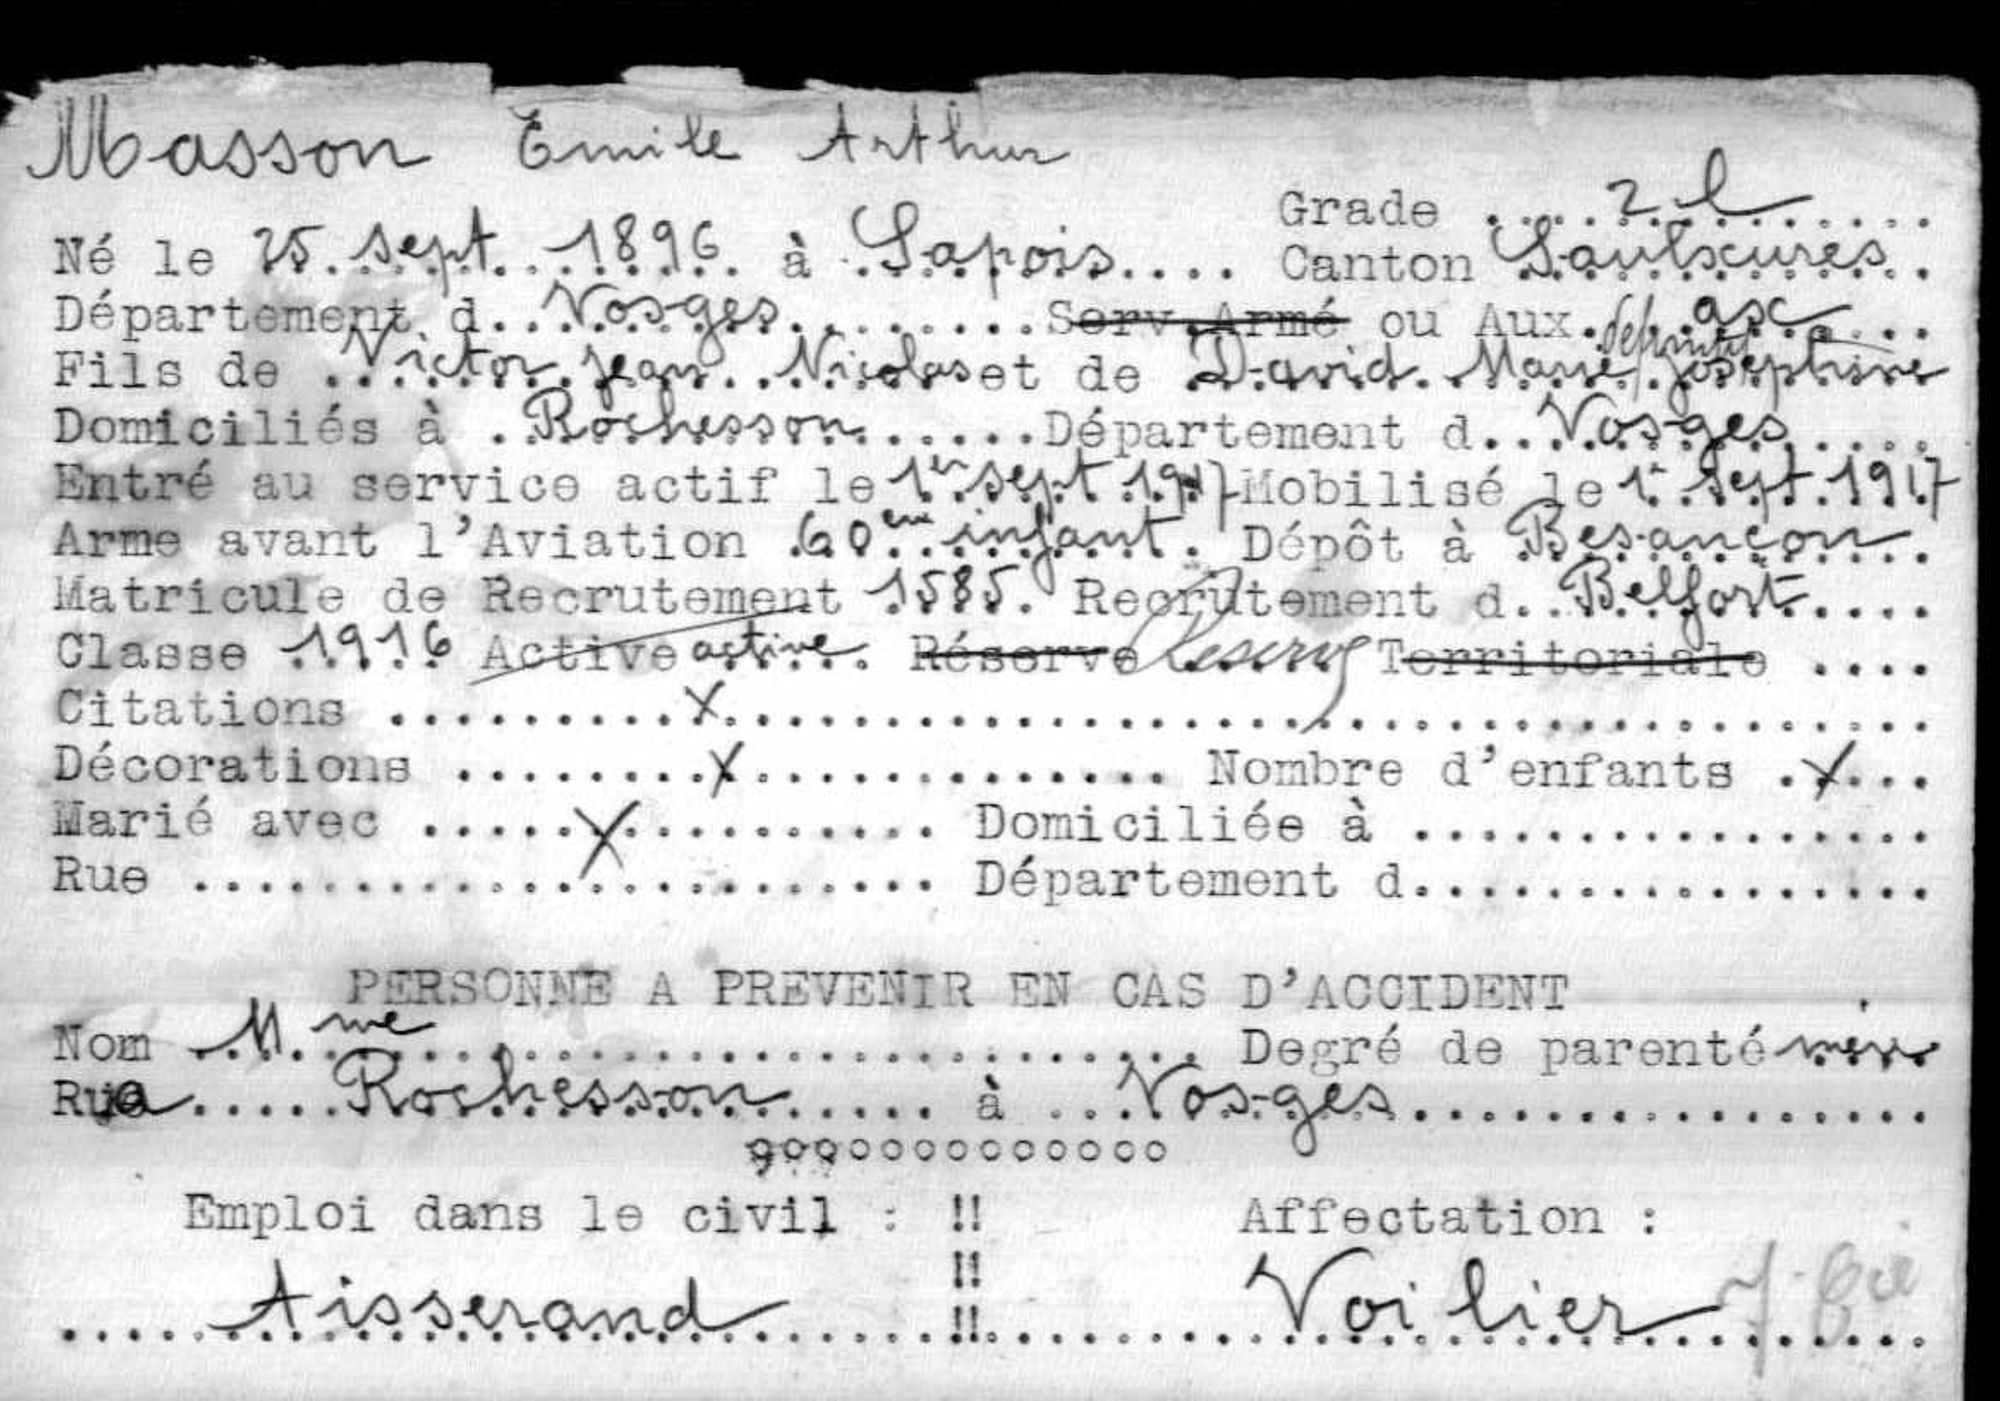 Masson Emile Arthur
Grade ... 2 l ...
Né le 25 sept. 1896 à Sapois.... Canton Saulxures
Département d..Vosges........ Serv.Armé ou Aux. asc
Fils de ..Victor Jean Nicolas et de David Marie Joséphine
Domiciliés à .Rochesson......Département d..Vosges....
Entré au service actif le 1er sept 1917 Mobilisé le 1er Sept. 1917
Arme avant l'Aviation 60eme infant. Dépôt à Besançon.
Matricule de Recrutement 1585. Recrutement d..Belfort....
Classe 1916 Active active.. Réserve Réserve Territoriale ....
Citations .........x..............................
Décorations ........x............... Nombre d'enfants .x...
Marié avec .....x............ Domiciliée à .................
Rue ........................ Département d.................
PERSONNE A PREVENIR EN CAS D'ACCIDENT
Nom ..Mme........................... Degré de parenté mère
Rue .....Rochesson...... à ...Vosges.................
ooooooooooooo
Emploi dans le civil : !! Affectation :
!!
.....tisserand........!!..........Voilier..........